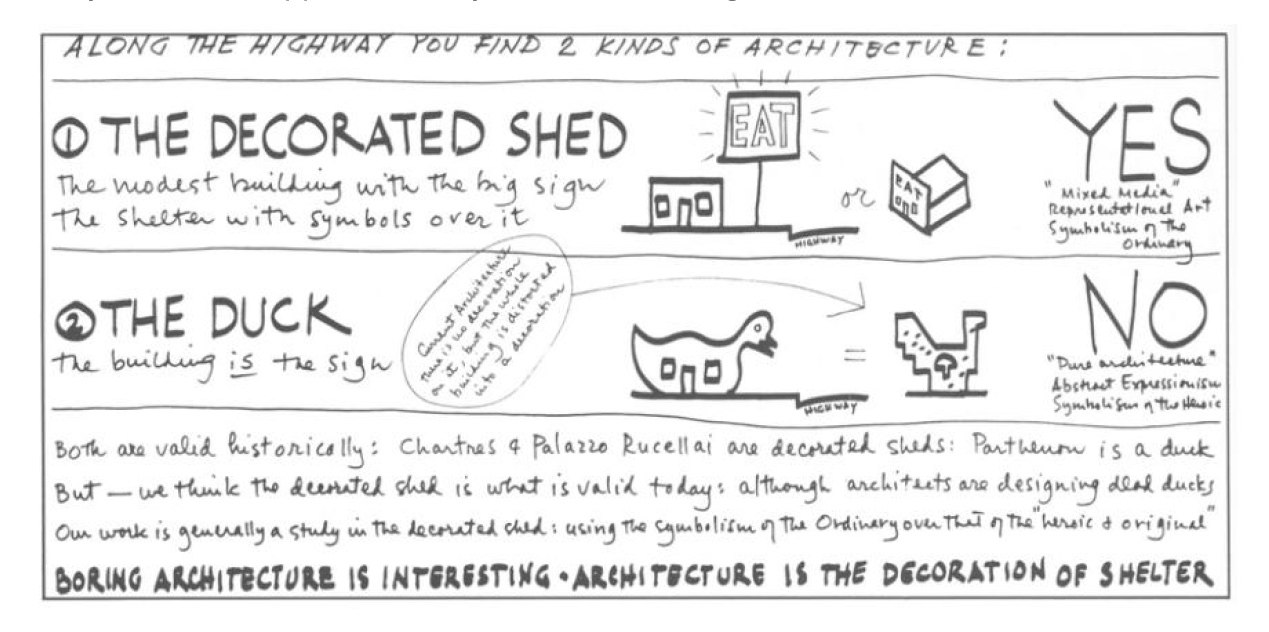 ALONG THE HIGHWAY YOU FIND 2 KINDS OF ARCHITECTURE:
① THE DECORATED SHED
The modest building with the big sign
The shelter with symbols over it
EAT
or
EAT
HIGHWAY
YES
"Mixed Media"
Representational Art
Symbolism of the
Ordinary
② THE DUCK
The building is the sign
Current Architecture
there is no decoration
on it, but the whole
building is distorted
into a decoration
=
HIGHWAY
NO
"Pure architecture"
Abstract Expressionism
Symbolism of the Heroic
Both are valid historically: Chartres & Palazzo Rucellai are decorated sheds: Parthenon is a duck
But — we think the decorated shed is what is valid today: although architects are designing dead ducks
Our work is generally a study in the decorated shed: using the symbolism of the Ordinary over that of the "heroic & original"
BORING ARCHITECTURE IS INTERESTING • ARCHITECTURE IS THE DECORATION OF SHELTER